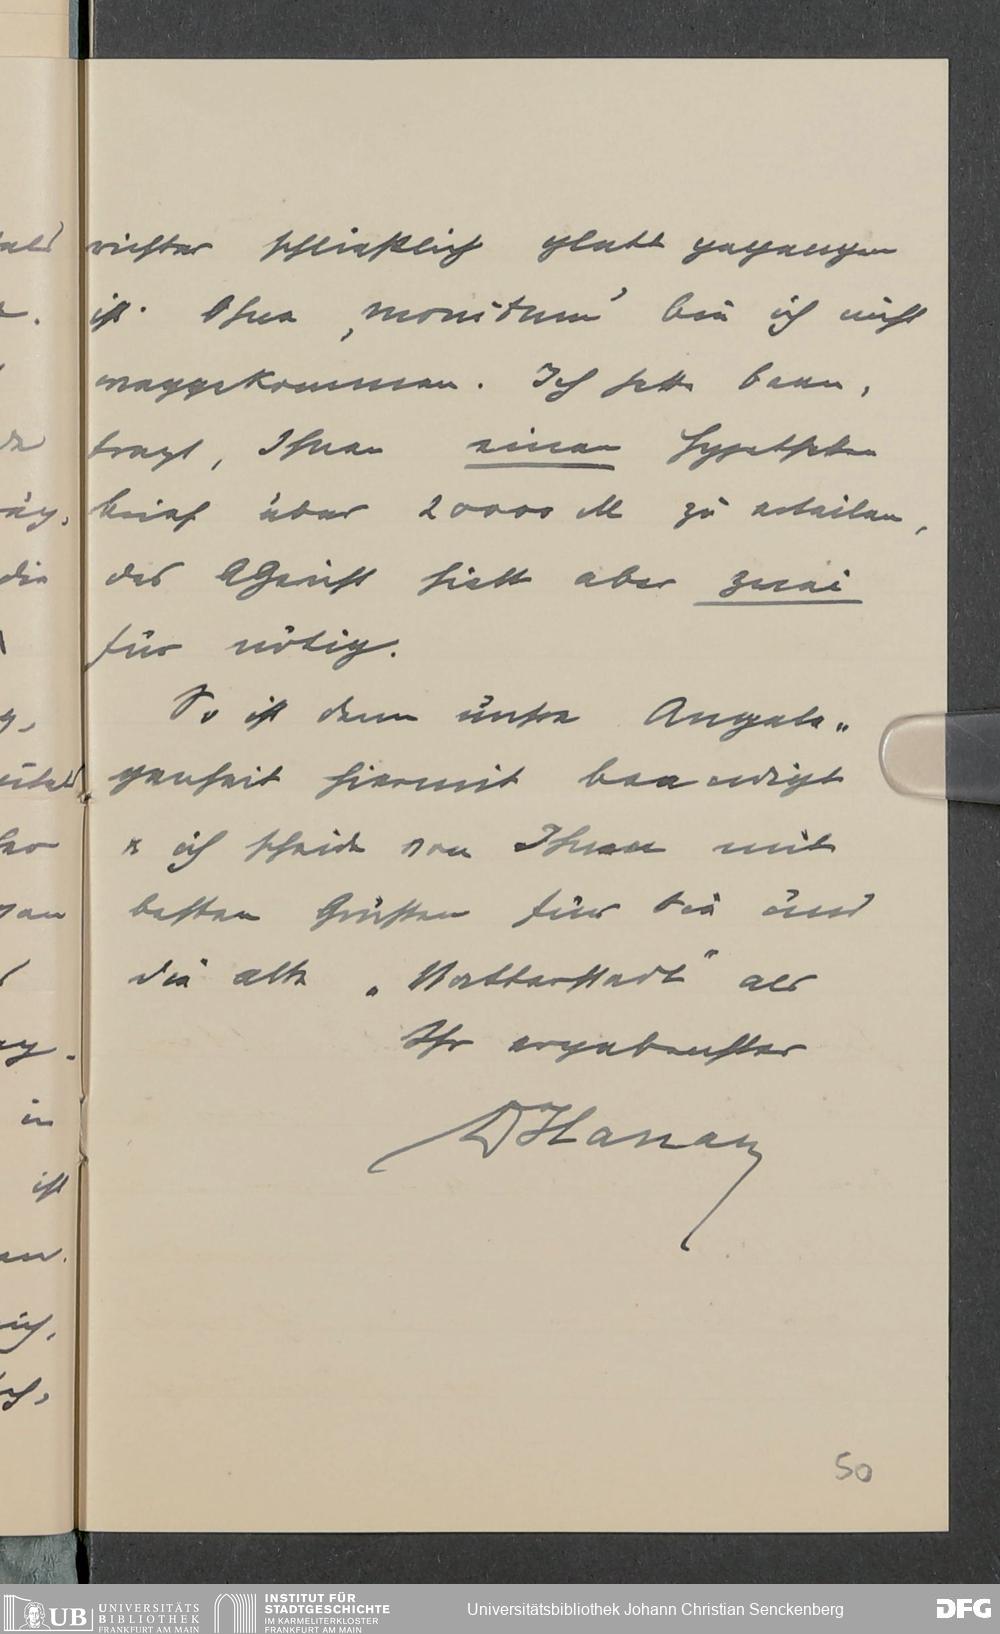 richter schließlich glatt gegangen
ist. Ohne ‚monitum‘ bin ich nicht
weggekommen. Ich hatte bean,
tragt, Ihnen einen Hypotheken
brief über 20000 M zu erteilen,
das AGericht hielt aber zwei
für nötig.
So ist denn unsre Angele„
genheit hiermit beendigt
u ich scheide von Ihnen mit
besten Grüßen für Sie und
die alte „Vatterstadt“ als
Ihr ergebenster
50
UB UNIVERSITÄTS
BIBLIOTHEK
FRANKFURT AM MAIN
INSTITUT FÜR
STADTGESCHICHTE
IM KARMELITERKLOSTER
FRANKFURT AM MAIN
Universitätsbibliothek Johann Christian Senckenberg
DFG